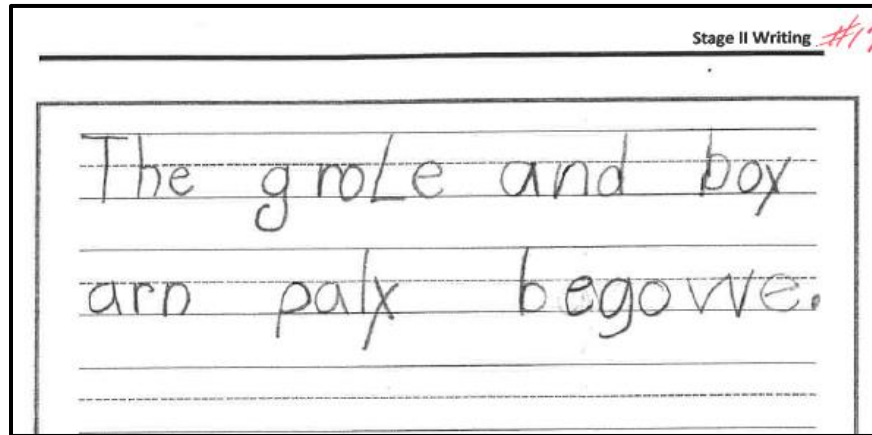 Stage II Writing #1
The groLe and boy
arn palx begowve.